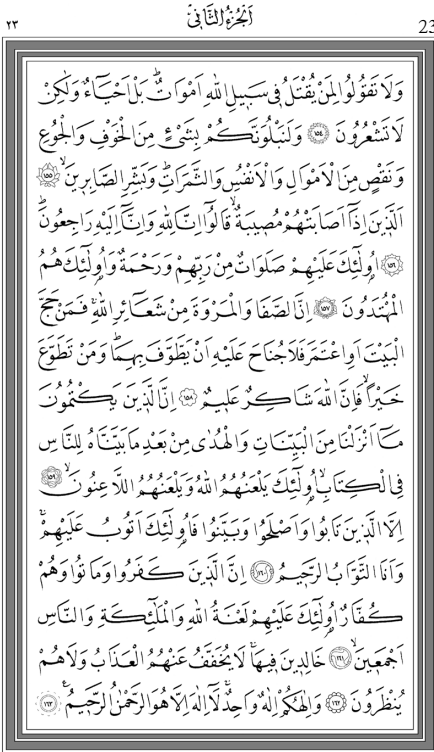 اَلْجُزْءُ الثَّانِي
٢٣
23
وَلَا تَقُولُوا لِمَنْ يُقْتَلُ فِي سَبِيلِ اللّٰهِ اَمْوَاتٌۜ بَلْ اَحْيَٓاءٌ وَلٰكِنْ
لَا تَشْعُرُونَ ﴿١٥٤﴾ وَلَنَبْلُوَنَّكُمْ بِشَيْءٍ مِنَ الْخَوْفِ وَالْجُوعِ
وَنَقْصٍ مِنَ الْاَمْوَالِ وَالْاَنْفُسِ وَالثَّمَرَاتِۜ وَبَشِّرِ الصَّابِرِينَۙ ﴿١٥٥﴾
اَلَّذِينَ اِذَٓا اَصَابَتْهُمْ مُصِيبَةٌۙ قَالُٓوا اِنَّا لِلّٰهِ وَاِنَّٓا اِلَيْهِ رَاجِعُونَۜ
﴿١٥٦﴾ اُو۬لٰٓئِكَ عَلَيْهِمْ صَلَوَاتٌ مِنْ رَبِّهِمْ وَرَحْمَةٌ وَاُو۬لٰٓئِكَ هُمُ
الْمُهْتَدُونَ ﴿١٥٧﴾ اِنَّ الصَّفَا وَالْمَرْوَةَ مِنْ شَعَٓائِرِ اللّٰهِۚ فَمَنْ حَجَّ
الْبَيْتَ اَوِ اعْتَمَرَ فَلَا جُنَاحَ عَلَيْهِ اَنْ يَطَّوَّفَ بِهِمَاۜ وَمَنْ تَطَوَّعَ
خَيْراًۙ فَاِنَّ اللّٰهَ شَاكِرٌ عَلِيمٌ ﴿١٥٨﴾ اِنَّ الَّذِينَ يَكْتُمُونَ
مَٓا اَنْزَلْنَا مِنَ الْبَيِّنَاتِ وَالْهُدٰى مِنْ بَعْدِ مَا بَيَّنَّاهُ لِلنَّاسِ
فِي الْكِتَابِۙ اُو۬لٰٓئِكَ يَلْعَنُهُمُ اللّٰهُ وَيَلْعَنُهُمُ اللَّاعِنُونَۙ ﴿١٥٩﴾
اِلَّا الَّذِينَ تَابُوا وَاَصْلَحُوا وَبَيَّنُوا فَاُو۬لٰٓئِكَ اَتُوبُ عَلَيْهِمْۚ
وَاَنَا التَّوَّابُ الرَّحِيمُ ﴿١٦٠﴾ اِنَّ الَّذِينَ كَفَرُوا وَمَاتُوا وَهُمْ
كُفَّارٌ اُو۬لٰٓئِكَ عَلَيْهِمْ لَعْنَةُ اللّٰهِ وَالْمَلٰٓئِكَةِ وَالنَّاسِ
اَجْمَعِينَۙ ﴿١٦١﴾ خَالِدِينَ فِيهَاۚ لَا يُخَفَّفُ عَنْهُمُ الْعَذَابُ وَلَا هُمْ
يُنْظَرُونَ ﴿١٦٢﴾ وَاِلٰهُكُمْ اِلٰهٌ وَاحِدٌۚ لَٓا اِلٰهَ اِلَّا هُوَ الرَّحْمٰنُ الرَّحِيمُ۟ ﴿١٦٣﴾